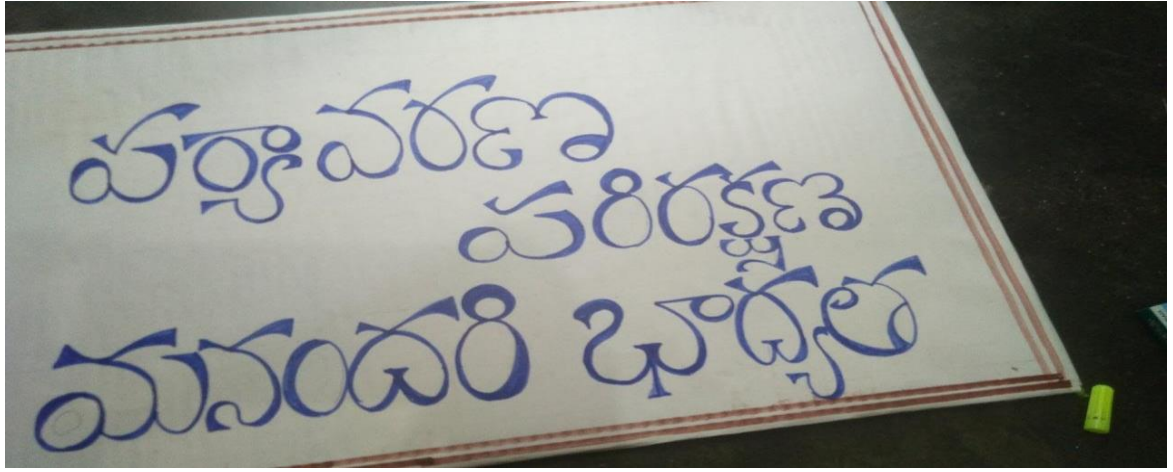 పర్యావరణ
పరిరక్షణ
మనందరి భాధ్యత